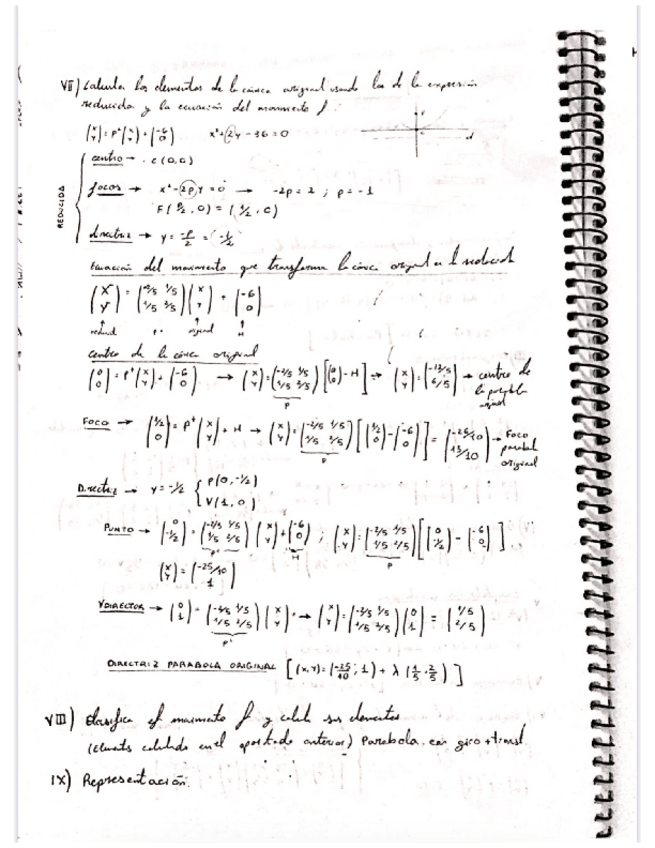 VII) Calcula los elementos de la cónica original usando los de la expresión
reducida y la ecuación del movimiento f.
(x y) = Pᵗ(x y) + (-6 0)   x²+2y-36=0
REDUCIDA
centro → . C(0,0)
focos → x²-2py=0 → -2p=2 ; p=-1
F(P/2, 0) = (1/2, 0)
directriz → y = -p/2 = (-1/2)
Ecuación del movimiento que transforma la cónica original en la reducida
(X Y) = (-2/5 1/5 1/5 2/5)(x y) + (-6 0)
reducid   Pᵗ   original   H
Centro de la cónica original
(0 0) = Pᵗ(x y) + (-6 0) → (x y) = (-2/5 1/5 1/5 2/5)[(0 0) - H] → (x y) = (-12/5 6/5) → centro de
P   la parábola
original
Foco → (1/2 0) = Pᵗ(x y) + H → (x y) = (-2/5 1/5 1/5 2/5)[(1/2 0) - (-6 0)] = (-26/10 13/10) → Foco
P   parabol
original
Directriz → y = -1/2 { P(0, -1/2)
V(1, 0)
PUNTO → (0 -1/2) = (-2/5 1/5 1/5 2/5)(x y) + (-6 0) ; (x y) = (-2/5 1/5 1/5 2/5)[(0 -1/2) - (-6 0)],
Pᵗ   H   P
(x y) = (-25/10 1)
VDIRECTOR → (0 1) = (-2/5 1/5 1/5 2/5)(x y) → (x y) = (-2/5 1/5 1/5 2/5)(0 1) = (1/5 2/5)
Pᵗ
DIRECTRIZ PARABOLA ORIGINAL [(x,y) = (-25/10 , 1) + λ (1/5 , 2/5)]
VIII) Clasifica el movimiento f y calcula sus elementos
(Elements calculados en el apartado anterior) Parabola. con giro + transl.
IX) Representación.